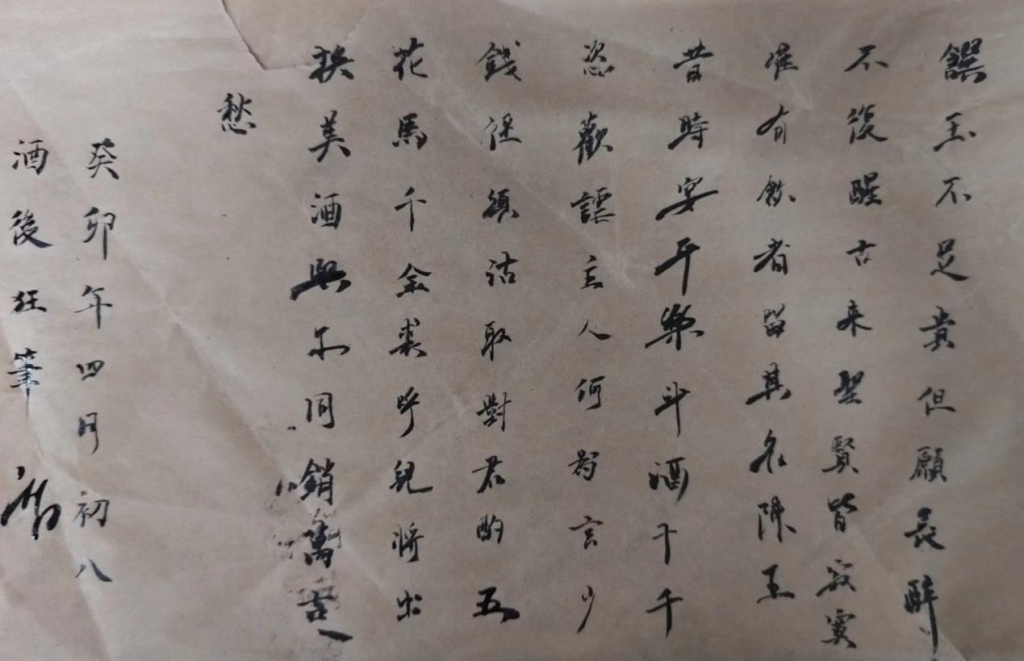 饌玉不足貴但願長醉
不復醒古来聖賢皆寂寞
惟有飲者留其名陳王
昔時宴平樂斗酒十千
恣歡謔主人何為言少
錢径須沽取對君酌五
花馬千金裘呼兒將出
换美酒與尔同銷萬古
愁
癸卯年四月初八
酒後狂筆